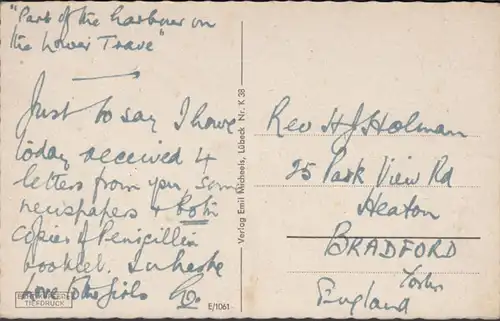 "Part of the harbour on
the Lower Trave"
Just to say I have
today received 4
letters from you, some
newspapers & both
copies of Penicillin
booklet. In haste
Love to the girls
Verlag Emil Micheels, Lübeck Nr. K 38
TIEFDRUCK
E/1061
Rev H J Holman
25 Park View Rd
Heaton
BRADFORD
Yorks
England